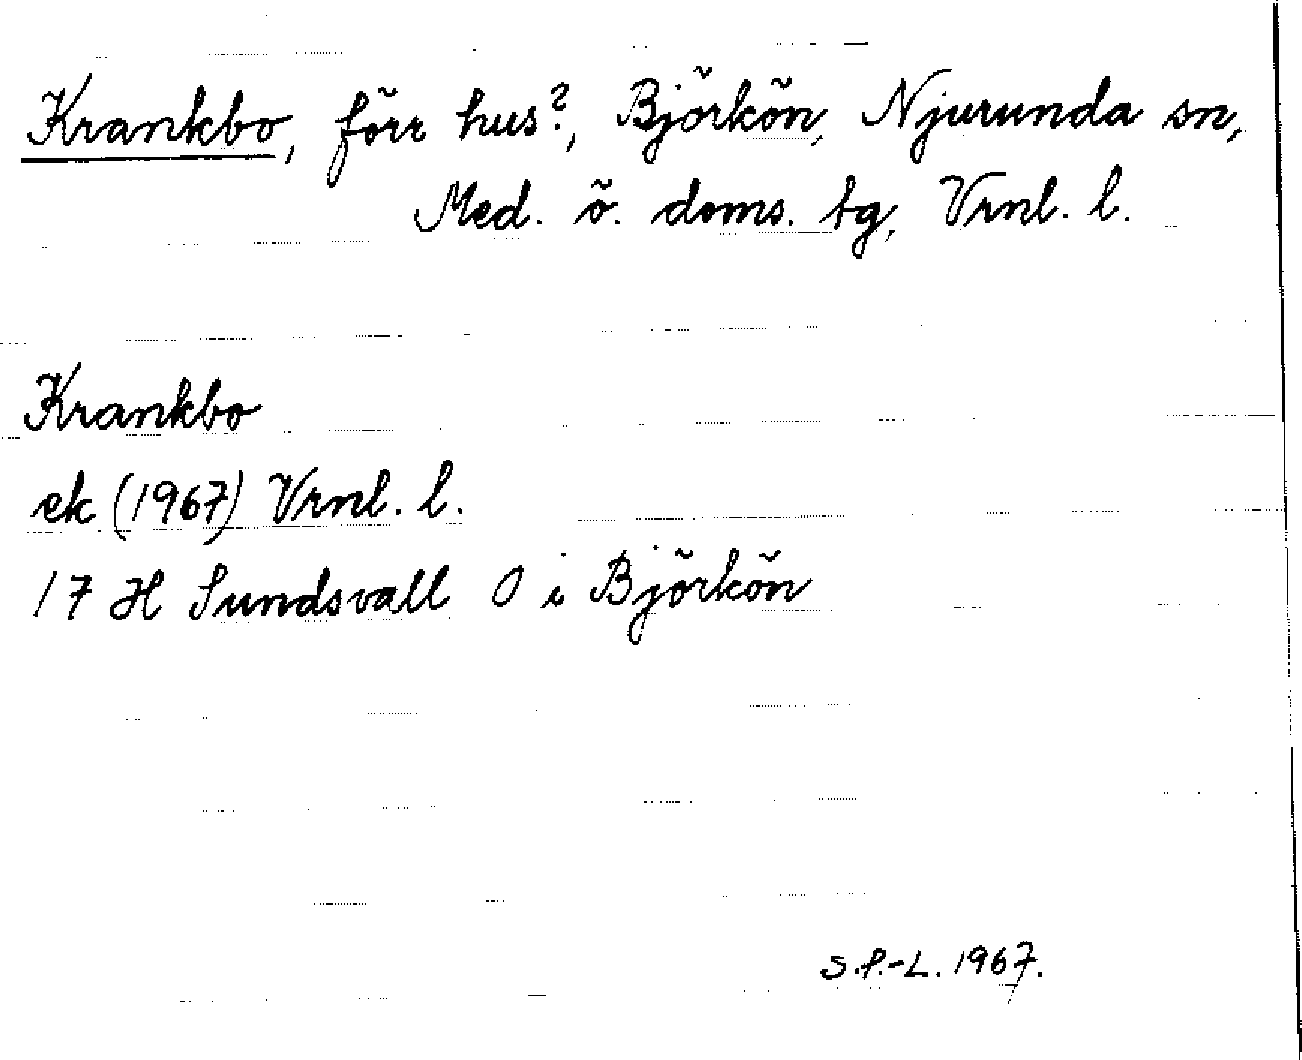 Krankbo, förr hus?, Björkön, Njurunda sn,
Med. ö. doms. tg, Vrnl. l.
Krankbo
ek (1967) Vrnl. l.
17 H Sundsvall O i Björkön
S.P.-L. 1967.